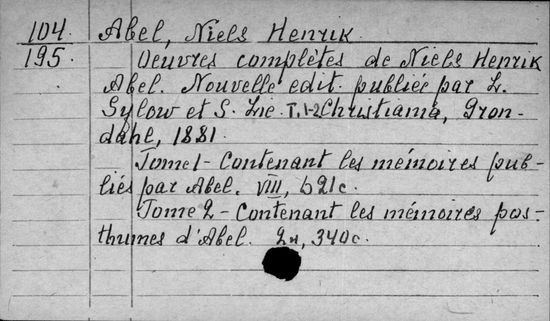 104. Abel, Niels Henrik.
195. Oeuvres complètes de Niels Henrik
Abel. Nouvelle edit. publiée par L.
Sylow et S. Lie. T. 1-2 Christiania, Gron-
dahl, 1881.
Tome 1 - Contenant les mémoires pub-
liés par Abel. VIII, 621c.
Tome 2 - Contenant les mémoires pos-
thumes d'Abel. 2н, 340c.